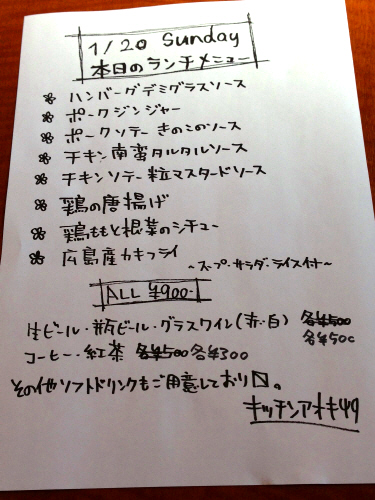 1/20 Sunday
本日のランチメニュー
ハンバーグデミグラスソース
ポークジンジャー
ポークソテー きのこのソース
チキン南蛮タルタルソース
チキンソテー 粒マスタードソース
鶏の唐揚げ
鶏ももと根菜のシチュー
広島産カキフライ
~スープ・サラダ・ライス付~
ALL ¥900-
生ビール・瓶ビール・グラスワイン(赤・白) 各¥500
各¥500
コーヒー・紅茶 各¥500 各¥300
その他ソフトドリンクもご用意しており〼。
キッチンアオキ49